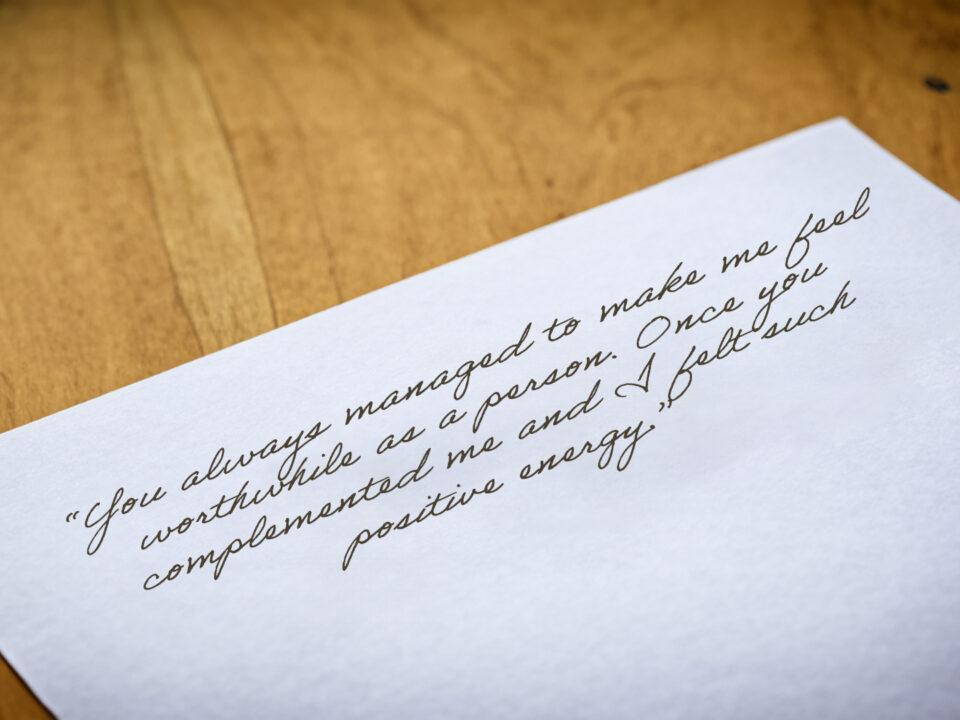 “You always managed to make me feel
worthwhile as a person. Once you
complemented me and I felt such
positive energy.”